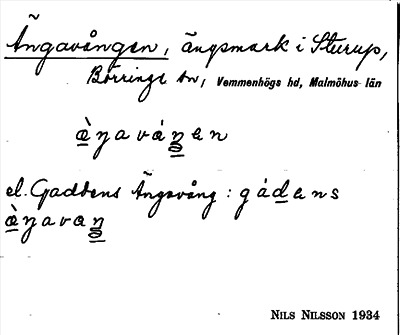 Ängavången, ängsmark i Sturup,
Börringe sn, Vemmenhögs hd, Malmöhus län
æ̀ŋavåŋen
el. Gaddens Ängavång: gádens
æ̀ŋavaŋ
NILS NILSSON 1934